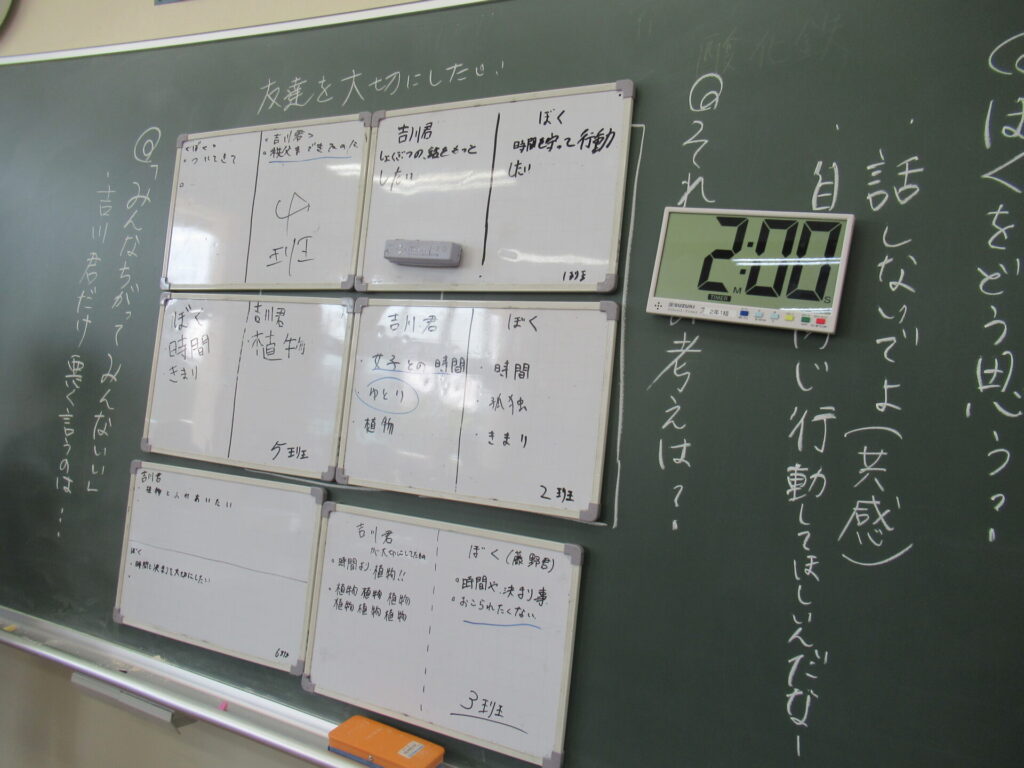 ぼくをどう思う?
・話しないでよ(共感)
行動してほしいんだな
酸化鉄
2:00
M
S
TIMER
SUZUKI
2年1組
友達を大切にしたい
ぼく
時間を守って行動
したい
吉川君
しょくぶつの話をもっと
したい
1班
吉川君
ぼく
・ついてきて
4班
吉川君
・女子との時間
ゆとり
・植物
ぼく
・時間
・孤独
・きまり
2班
ぼく
時間
きまり
吉川君
・植物
5班
吉川君
が大切にしてたもの
・時間より、植物!!
・植物 植物 植物
植物 植物 植物
ぼく(藤野君)
・時間や、決まり事
・おこられたくない。
3班
吉川君
ぼく
・時間と決まりを大切にしたい
6班
考えは?
「みんなちがってみんないい」
・吉川君だけ悪く言うのは…